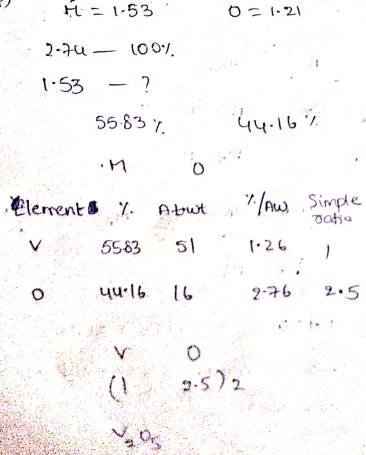 M = 1.53 O = 1.21
2.74 — 100%
1.53 — ?
55.83 % 44.16 %
M O
Element % At.wt %/AW Simple ratio
V 5583 51 1.26 1
O 44.16 16 2.76 2.5
V O
(1 2.5) 2
V2O5